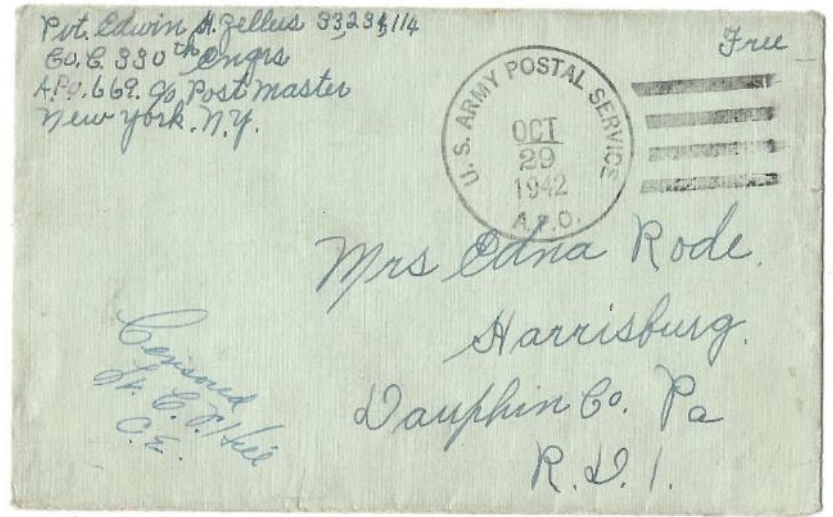 Pvt. Edwin H. Zellus 33,231,114
Co. C. 330th Engrs
A.P.O. 669. c/o Post Master
New York. N.Y.
Free
U. S. ARMY POSTAL SERVICE
OCT
29
1942
A.P.O.
Mrs Edna Rode.
Harrisburg.
Dauphin Co. Pa
R.D. 1.
Censored
Lt. C. D. Hill
C.E.